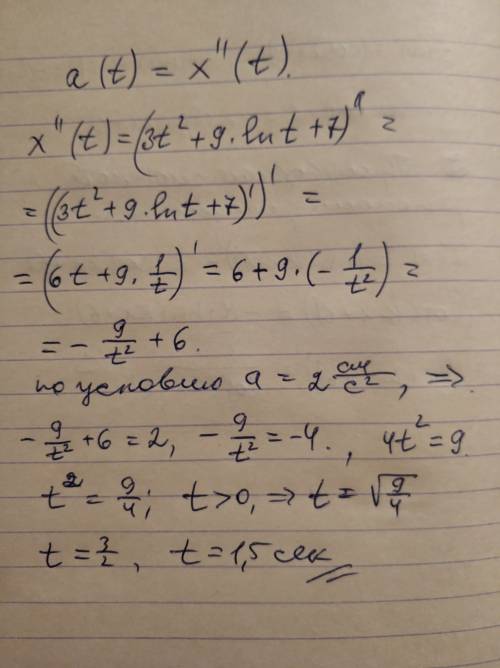 a(t) = x''(t).
x''(t) = (3t² + 9·ln t + 7)'' =
= ((3t² + 9·ln t + 7)')' =
= (6t + 9·1/t)' = 6 + 9·(-1/t²) =
= -9/t² + 6.
по условию a = 2 см/с², =>
-9/t² + 6 = 2, -9/t² = -4. , 4t² = 9
t² = 9/4; t > 0, => t = √(9/4)
t = 3/2, t = 1,5 сек